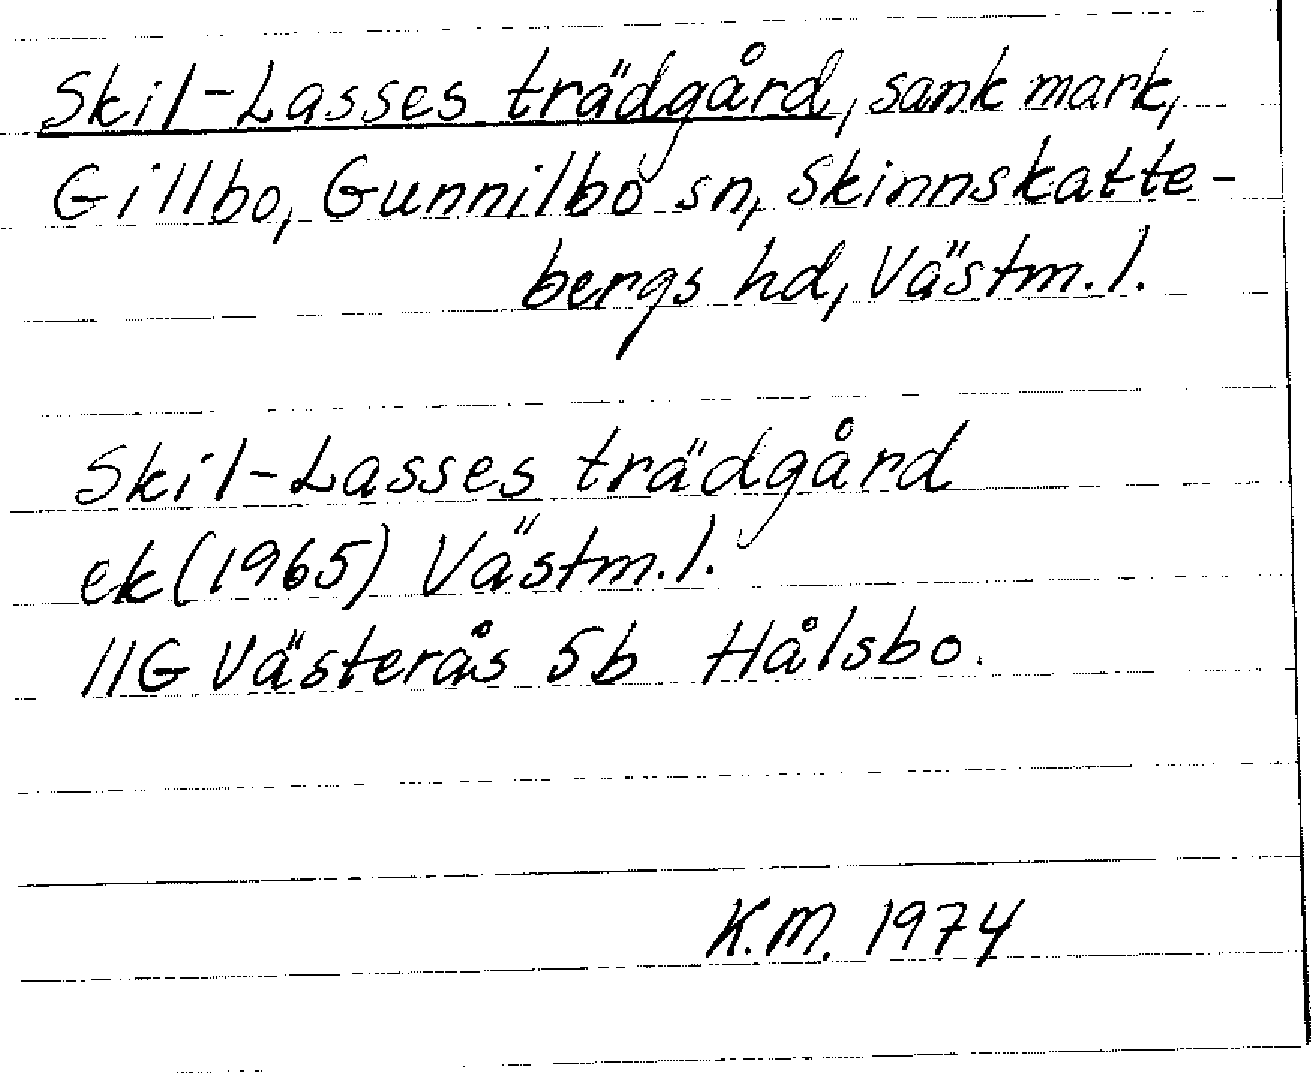 Skil-Lasses trädgård, sank mark,
Gillbo, Gunnilbo sn, Skinnskatte-
bergs hd, Västm.l.
Skil-Lasses trädgård
ek (1965) Västm.l.
11G Västerås 5b Hålsbo.
K.M. 1974